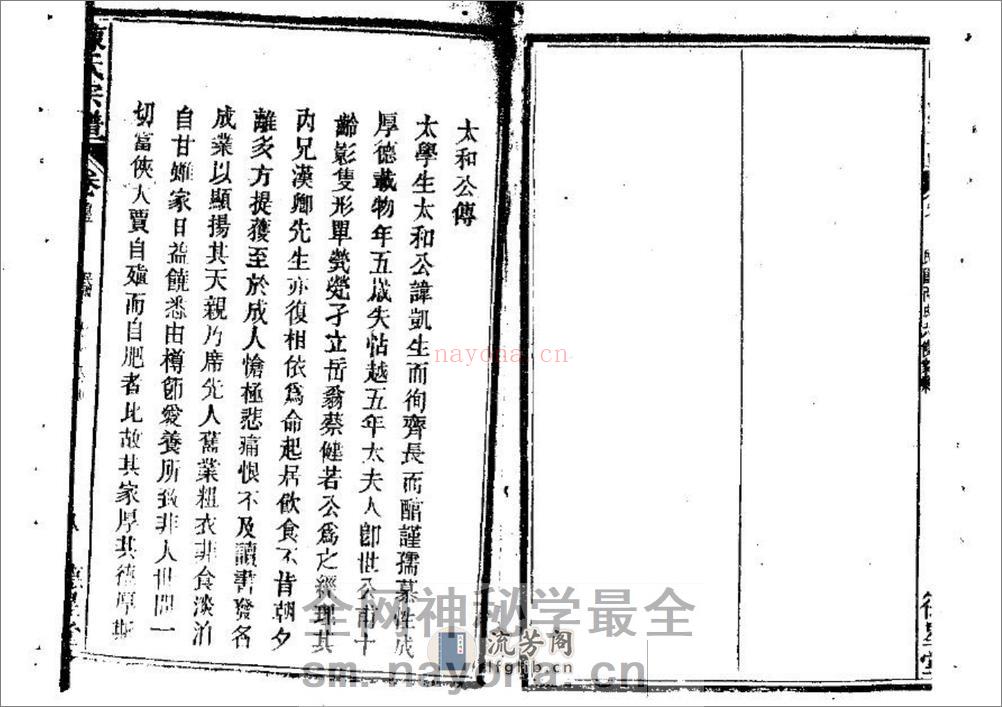 太和公傳
太學生太和公諱凱生而徇齊長而醕謹孺慕性成
厚德載物年五歲失怙越五年太夫人卽世公甫十
齡影隻形單煢煢孑立岳翁蔡健若公爲之經理其
內兄漢卿先生亦復相依爲命起居飮食不昔朝夕
離多方提獲至於成人愴極悲痛恨不及讀書發名
成業以顯揚其天親乃席先人舊業粗衣非食淡泊
自甘雖家日益饒悉由樽節愛養所致非人世間一
切富俠大賈自殖而自肥者比故其家厚其德厚斯
氏宗譜
卷
nayona.cn
全网神秘学最全
流芳阁
dfglib.cn
sm.nayona.cn